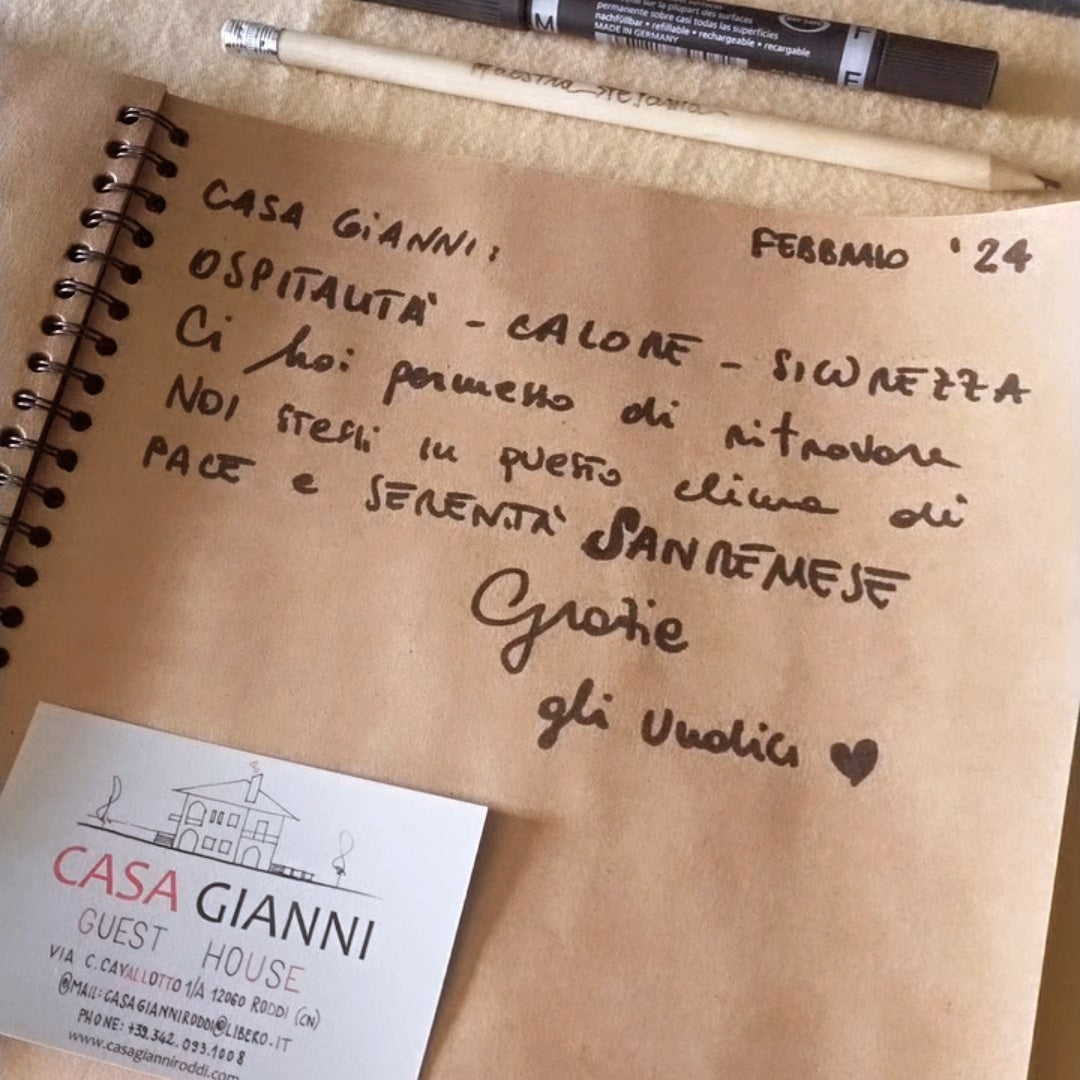 sur la plupart des surfaces
permanente sobre casi todas las superficies
nachfüllbar • refillable • rechargeable • recargable
MADE IN GERMANY
M
F
Maestra Stefania
CASA GiANNi:
FEBBRAIO '24
OSPITALITÀ - CALORE - SICUREZZA
Ci hai permesso di ritrovare
NOI stessi in questo clima di
PACE e SERENITÀ SANREMESE
Grazie
gli Undici ♥
CASA GIANNI
GUEST HOUSE
VIA C. CAVALLOTTO 1/A 12060 RODDI (CN)
@MAIL: CASAGIANNIRODDI@LIBERO.IT
PHONE: +39.342.093.1008
www.casagianniroddi.com